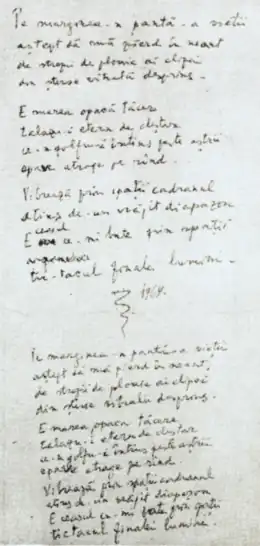 Pe marginea-n pantă-a vieții
aștept să mă pierd în neant
de stropii de ploaie ai clipei
din șterse vibrații desprins.
E marea opacă tăcere
talazu-i etern de cleștar
ce-n golfu-i întins peste aștri
opace atrage pe rînd.
Vibrează prin spații cadranul
atins de-un vrăjit diapazon
E ceasul ce-mi bate prin nopți
tic-tacul finalei lumini.
1969.
Pe marginea-n pantă-a vieții
aștept să mă pierd în neant
de stropii de ploaie ai clipei
din șterse vibrații desprins.
E marea opacă tăcere
talazu-i etern de cleștar
ce-n golfu-i întins peste aștri
opace atrage pe rînd.
Vibrează prin spații cadranul
atins de-un vrăjit diapazon
E ceasul ce-mi bate prin
tictacul finalei lumini.